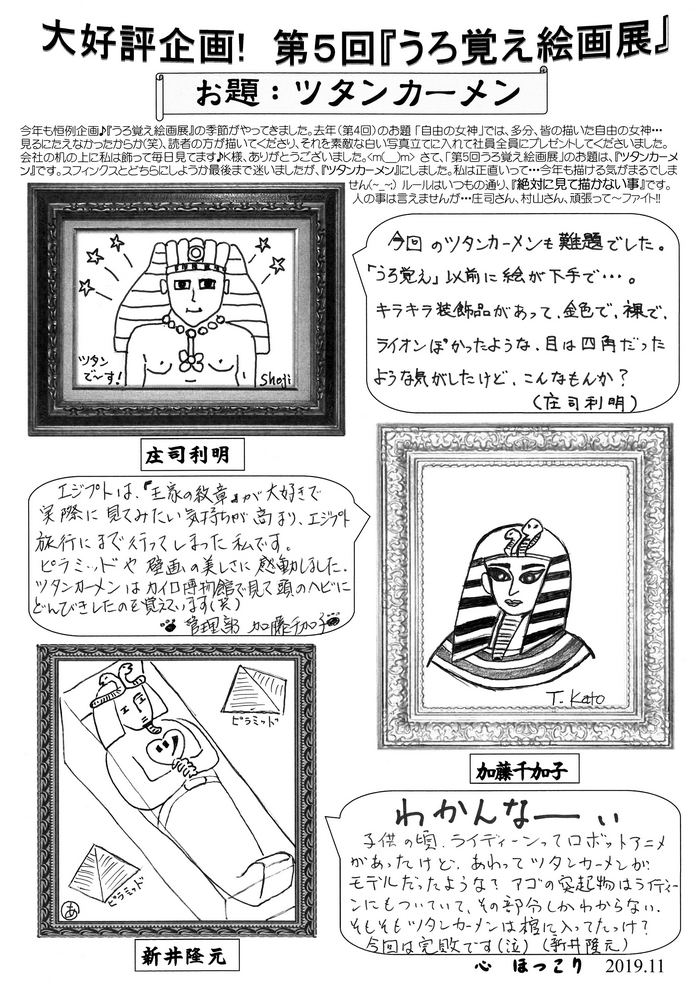 大好評企画! 第5回『うろ覚え絵画展』
お題：ツタンカーメン
今年も恒例企画♪『うろ覚え絵画展』の季節がやってきました。去年（第4回）のお題「自由の女神」では、多分、皆の描いた自由の女神…
見るにたえなかったからか(笑)、読者の方が描いてくださり、それを素敵な白い写真立てに入れて社員全員にプレゼントしてくださいました。
会社の机の上に私は飾って毎日見てます♪K様、ありがとうございました。<m(__)m> さて、「第5回うろ覚え絵画展」のお題は、『ツタンカーメ
ン』です。スフィンクスとどちらにしようか最後まで迷いましたが、『ツタンカーメン』にしました。私は正直いって…今年も描ける気がまるでしま
せん(~_~;) ルールはいつもの通り、『絶対に見て描かない事』です。
人の事は言えませんが…庄司さん、村山さん、頑張って～ファイト!!
ツタン
で～す!
Shoji
庄司利明
今回のツタンカーメンも難題でした。
「うろ覚え」以前に絵が下手で…。
キラキラ装飾品があって、金色で、裸で、
ライオンぽかったような、目は四角だった
ような気がしたけど、こんなもんか？
（庄司利明）
エジプトは、『王家の紋章』が大好きで
実際に見てみたい気持ちが高まり、エジプト
旅行にまで行ってしまった私です。
ピラミッドや壁画の美しさに感動しました。
ツタンカーメンはカイロ博物館で見て頭のヘビに
どんびきしたのを覚えています(笑)
管理部 加藤千加子
T. Kato
加藤千加子
ピラミッド
ツ
ピラミッド
あ
新井隆元
わかんなーい
子供の頃、ライディーンってロボットアニメ
があったけど、あれってツタンカーメンが
モデルだったような？アゴの突起物はライディー
ンにもついていて、その部分しかわからない。
そもそもツタンカーメンは棺に入ってたっけ？
今回は完敗です(泣) (新井隆元)
心 ほっこり 2019.11